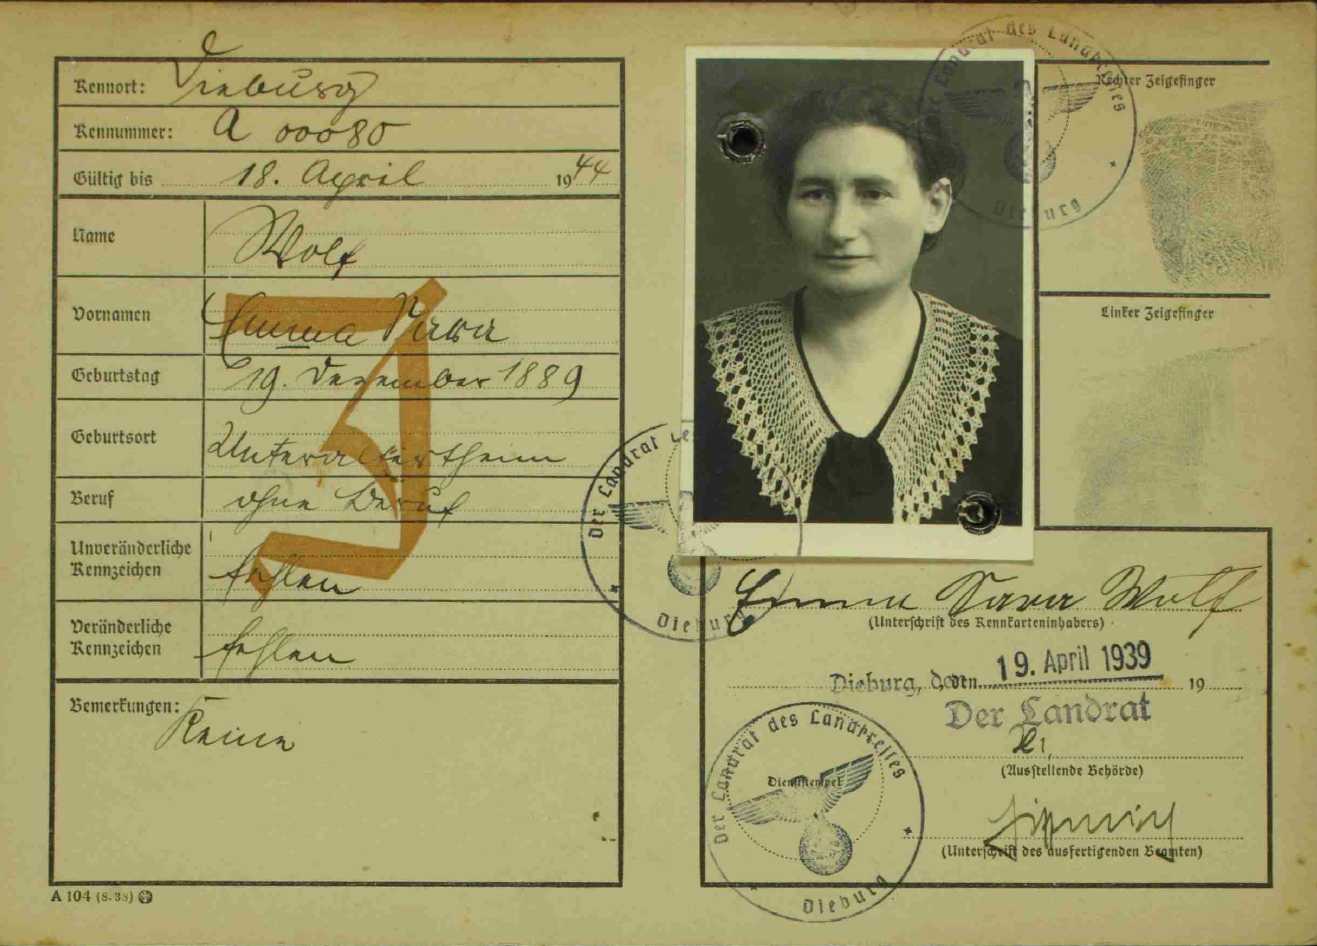 Kennort: Dieburg
Kennummer: A 00080
Gültig bis 18. April 1944
Name Wolf
Vornamen Emma Sara
Geburtstag 19. Dezember 1889
Geburtsort
Beruf ohne Beruf
Unveränderliche
Kennzeichen fehlen
Veränderliche
Kennzeichen fehlen
Bemerkungen:
Keine
J
A 104 (8. 38)
Der Landrat des Landkreises
Dieburg
Rechter Zeigefinger
Linker Zeigefinger
Der Landrat des
Dieburg
Emma Sara Wolf
(Unterschrift des Kennkarteninhabers)
Dieburg, den 19. April 1939 19
Der Landrat
(Ausstellende Behörde)
Der Landrat des Landkreises
Dienststempel
Dieburg
(Unterschrift des ausfertigenden Beamten)